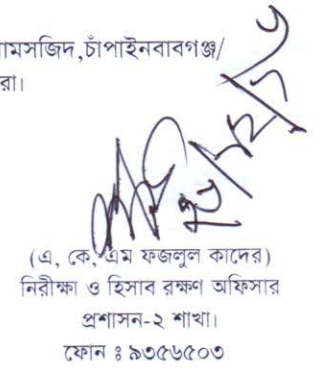 ামসজিদ,চাঁপাইনবাবগঞ্জ/
রা।
(এ, কে, এম ফজলুল কাদের)
নিরীক্ষা ও হিসাব রক্ষণ অফিসার
প্রশাসন-২ শাখা।
ফোন ঃ ৯৩৫৬৫০৩